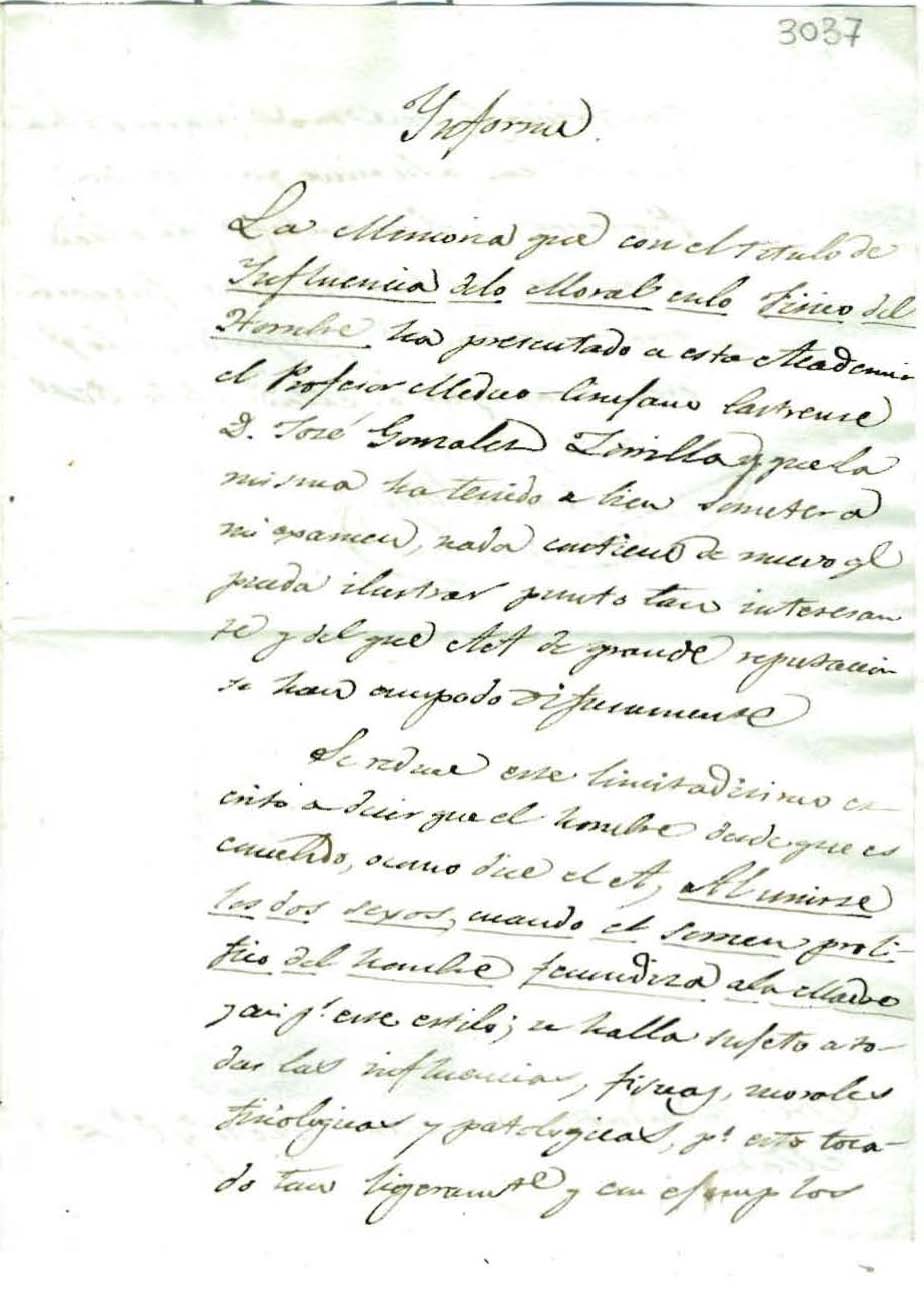 3037
Ynforme.
La Memoria que con el titulo de
Influencia delo Moral enlo Fisico del
Hombre, ha presentado a esta Academia
el Profesor Medico-Cirujano Castrense
D. José Gonzalez Zorrilla y que la
misma ha tenido a bien someter a
mi examen, nada contiene de nuevo qe
pueda ilustrar punto tan interesan
te y del que AA de grande reputacion
se han ocupado difusamente
Se reduce este limitadisimo es-
crito a decir que el hombre desde que es
concebido, o como dice el A, Al unirse
los dos sexos, cuando el semen proli-
fico del hombre fecundiza a la Madre
y asi pr ese estilo; se halla sujeto a to-
das las influencias, fisicas, morales
fisiologicas y patologicas, po esto toca-
do tan ligeramte y con ejemplos